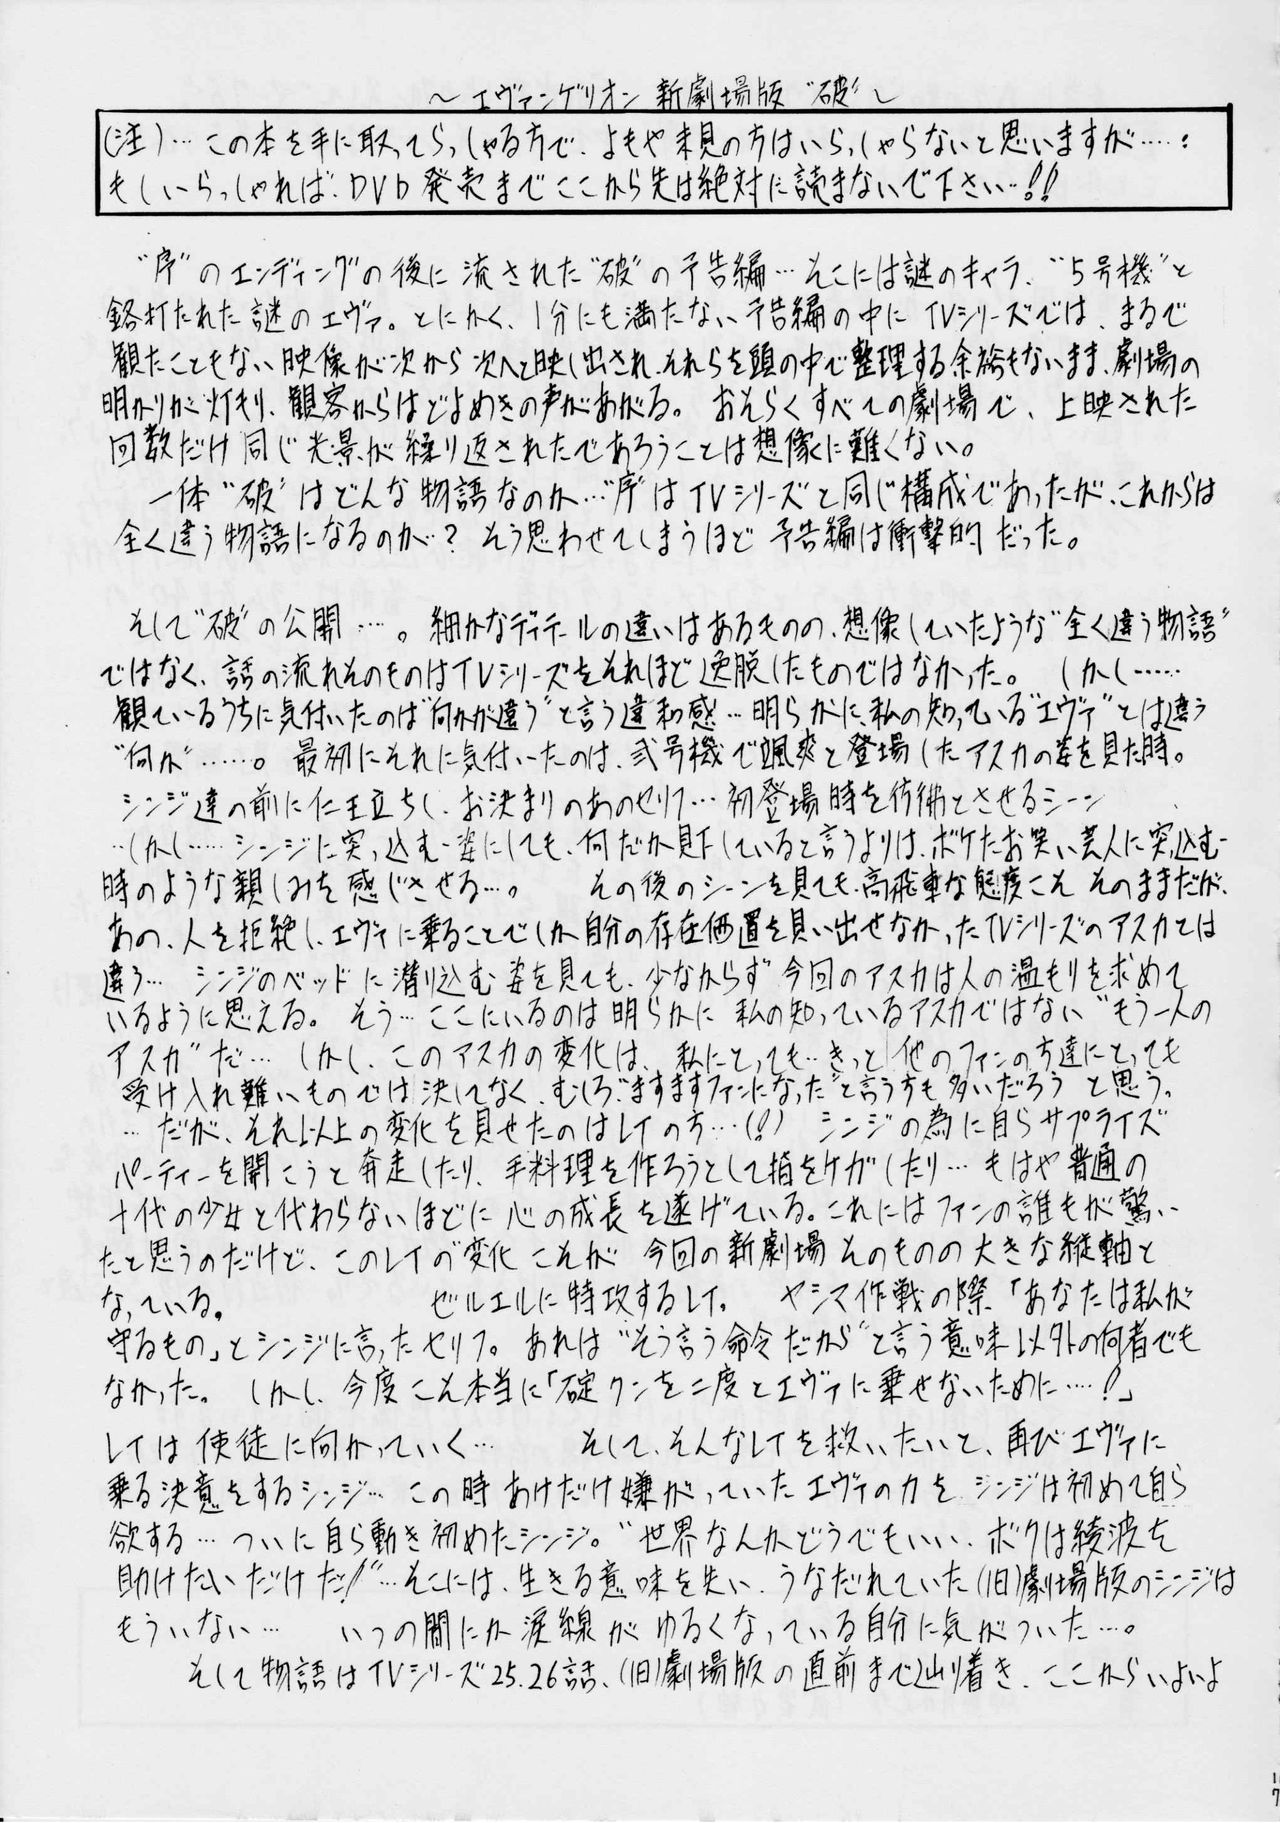 ～エヴァンゲリオン 新劇場版 "破"～
(注)…この本を手に取ってらっしゃる方で、よもや未見の方はいらっしゃらないと思いますが……:
もしいらっしゃれば、DVD発売までここから先は絶対に読まないで下さい…!!
"序"のエンディングの後に流された"破"の予告編…そこには謎のキャラ、"5号機"と
銘打たれた謎のエヴァ。とにかく、1分にも満たない予告編の中にTVシリーズでは、まるで
観たこともない映像が次から次へと映し出され、それらを頭の中で整理する余裕もないまま、劇場の
明かりが灯もり、観客からはどよめきの声があがる。おそらくすべての劇場で、上映された
回数だけ同じ光景が繰り返されたであろうことは想像に難くない。
一体"破"はどんな物語なのか…"序"はTVシリーズと同じ構成であったが、これからは
全く違う物語になるのか…?そう思わせてしまうほど予告編は衝撃的だった。
そして"破"の公開…。細かなディテールの違いはあるものの、想像していたような"全く違う物語"
ではなく、話の流れそのものはTVシリーズをそれほど逸脱したものではなかった。しかし……
観ているうちに気付いたのは"何かが違う"と言う違和感…明らかに、私の知っている"エヴァ"とは違う
"何か"……。最初にそれに気付いたのは、弐号機で颯爽と登場したアスカの姿を見た時。
シンジ達の前に仁王立ちし、お決まりのあのセリフ…初登場時を彷彿とさせるシーン
…しかし……シンジに突っ込む姿にしても、何だか見下していると言うよりは、ボケたお笑い芸人に突込む
時のような親しみを感じさせる…。その後のシーンを見ても、高飛車な態度こそそのままだが、
あの、人を拒絶し、エヴァに乗ることでしか自分の存在価置を見い出せなかったTVシリーズのアスカとは
違う…シンジのベッドに潜り込む姿を見ても、少なからず今回のアスカは人の温もりを求めて
いるように思える。そう…ここにいるのは明らかに私の知っているアスカではない"もう一人の
アスカ"だ…しかし、このアスカの変化は、私にとっても…きっと他のファンの方達にとっても
受け入れ難いものでは決してなく、むしろ"ますますファンになった"と言う方も多いだろうと思う。
…だが、それ以上の変化を見せたのはレイの方…(!)シンジの為に自らサプライズ
パーティーを開こうと奔走したり、手料理を作ろうとして指をケガしたり…もはや普通の
十代の少女と代わらないほどに心の成長を遂げている。これにはファンの誰もが驚い
たと思うのだけど、このレイの"変化"こそが今回の新劇場そのものの大きな縦軸と
なっている。ゼルエルに特攻するレイ。ヤシマ作戦の際「あなたは私が
守るもの」とシンジに言ったセリフ。あれは"そう言う命令だから"と言う意味以外の何者でも
なかった。しかし、今度こそ本当に「碇クンを二度とエヴァに乗せないために…!」
レイは使徒に向かっていく…そして、そんなレイを救いたいと、再びエヴァに
乗る決意をするシンジ…この時あけだけ嫌がっていたエヴァの力を、シンジは初めて自ら
欲する…ついに自ら動き初めたシンジ。"世界なんかどうでもいい、ボクは綾波を
助けたいだけだ!"…そこには、生きる意味を失い、うなだれていた(旧)劇場版のシンジは
もういない…いつの間にか涙線がゆるくなっている自分に気がついた…。
そして物語はTVシリーズ25.26話、(旧)劇場版の直前まで辿り着き、ここからいよいよ